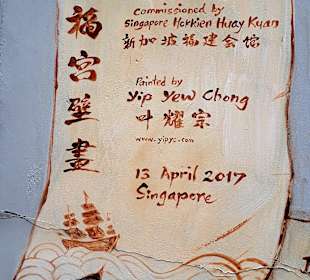 福宫壁畫
Commissioned by
Singapore Hokkien Huay Kuan
新加坡福建会馆
Painted by
Yip Yew Chong
叶耀宗
www.yipyc.com
13 April 2017
Singapore